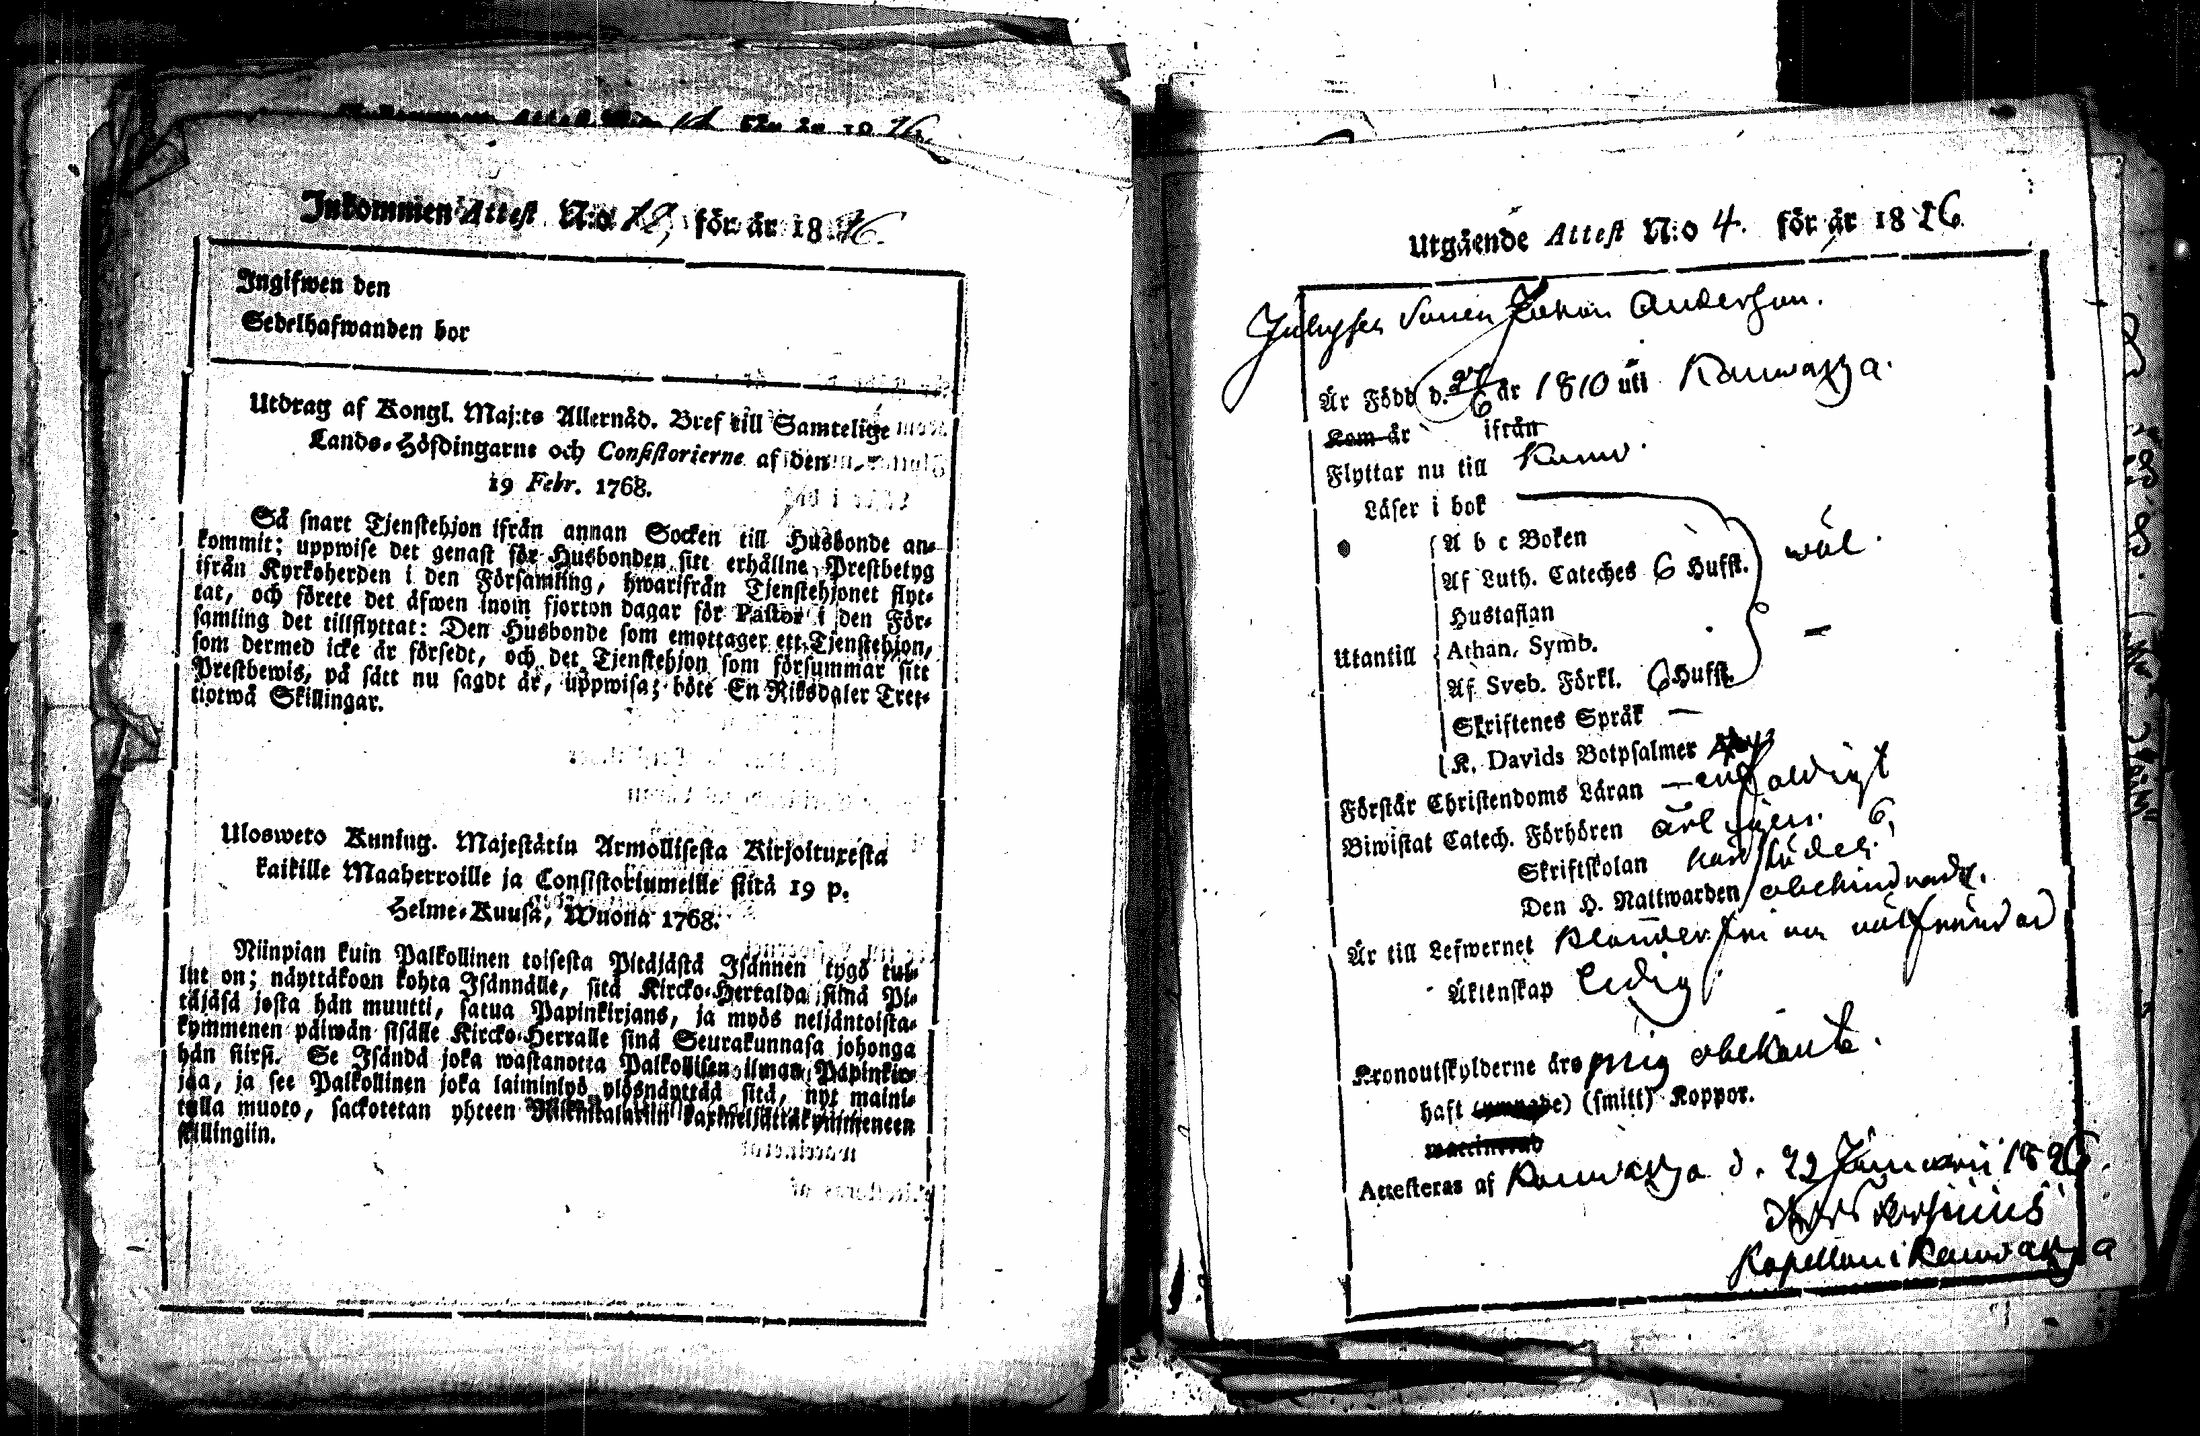 Inkommen Attest N:o 12, för år 1826.
Ingifwen den
Sedelhafwanden bor
Utdrag af Kongl. Maj:ts Allernåd. Bref till Samtelige
Lands-Höfdingarne och Consistorierne af den
19 Febr. 1768.
Så snart Tjenstehjon ifrån annan Socken till Husbonde an-
kommit; uppwise det genast för Husbonden sitt erhållne Prestbetyg
ifrån Kyrkoherden i den Församling, hwarifrån Tjenstehjonet flyt-
tat, och förete det äfwen inom fjorton dagar för Pastor i den För-
samling det tillflyttat: Den Husbonde som emottager ett Tjenstehjon,
som dermed icke är försedt, och det Tjenstehjon som försummar sitt
Prestbewis, på sätt nu sagdt är, uppwisa; böte En Riksdaler Tret-
tiotwå Skillingar.
Ulosweto Kuning. Majestätin Armollisesta Kirjoituxesta
kaikille Maaherroille ja Consistoriumeille siitä 19 p.
Helme-Kuusa, Wuona 1768.
Niinpian kuin Palkollinen toisesta Pitäjästä Isännen tygö tul-
lut on; näyttäkoon kohta Isännälle, sitä Kircko-Herralda siinä Pi-
täjäsä josta hän muutti, saatua Papinkirjans, ja myös neljäntoista-
kymmenen päiwän sisälle Kircko-Herralle siinä Seurakunnasa johonga
hän siirsi. Se Isändä joka wastanotta Palkollisen ilman Papinkir-
jaa, ja see Palkollinen joka laiminlyö ylösnäyttää sitä, nyt maini-
tulla muoto, sackotetan yhteen Riikintalariin kaxineljättäkymmeneen
skillingiin.
Utgående Attest N:o 4. för år 1826
Sonen Johan Anderson.
Är Född d. 27/6 år 1810 uti Kauwatza.
Kom år ifrån
Flyttar nu till Kumo.
Läser i bok
A b c Boken
Af Luth. Cateches 6 Hufst. wäl.
Hustaflan
Utantill Athan. Symb. —
Af Sveb. Förkl. 6 Hufst.
Skriftenes Språk —
K. Davids Botpsalmer
Förstår Christendoms Läran — enfaldigt
Biwistat Catech. Förhören årligen. 6,
Skriftskolan
Den H. Nattwarden obehindrad.
Är till Lefwernet klanderfri
Äktenskap ledig
Kronoutskylderne äro mig obekante.
haft (ympade) (smitt) Koppor.
waccinerad
Attesteras af Kauwatza d. 22 Januarii 1826.
Kapellan i Kauwatza